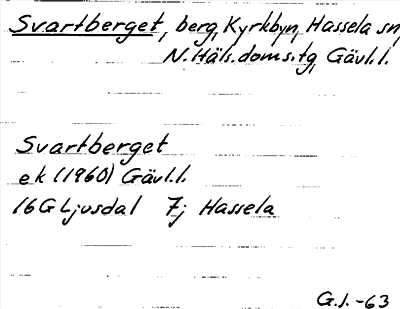 Svartberget, berg, Kyrkbyn, Hassela sn,
N. Häls. doms.tg, Gävl.l.
Svartberget
ek (1960) Gävl.l.
16G Ljusdal 7j Hassela
G.I.-63